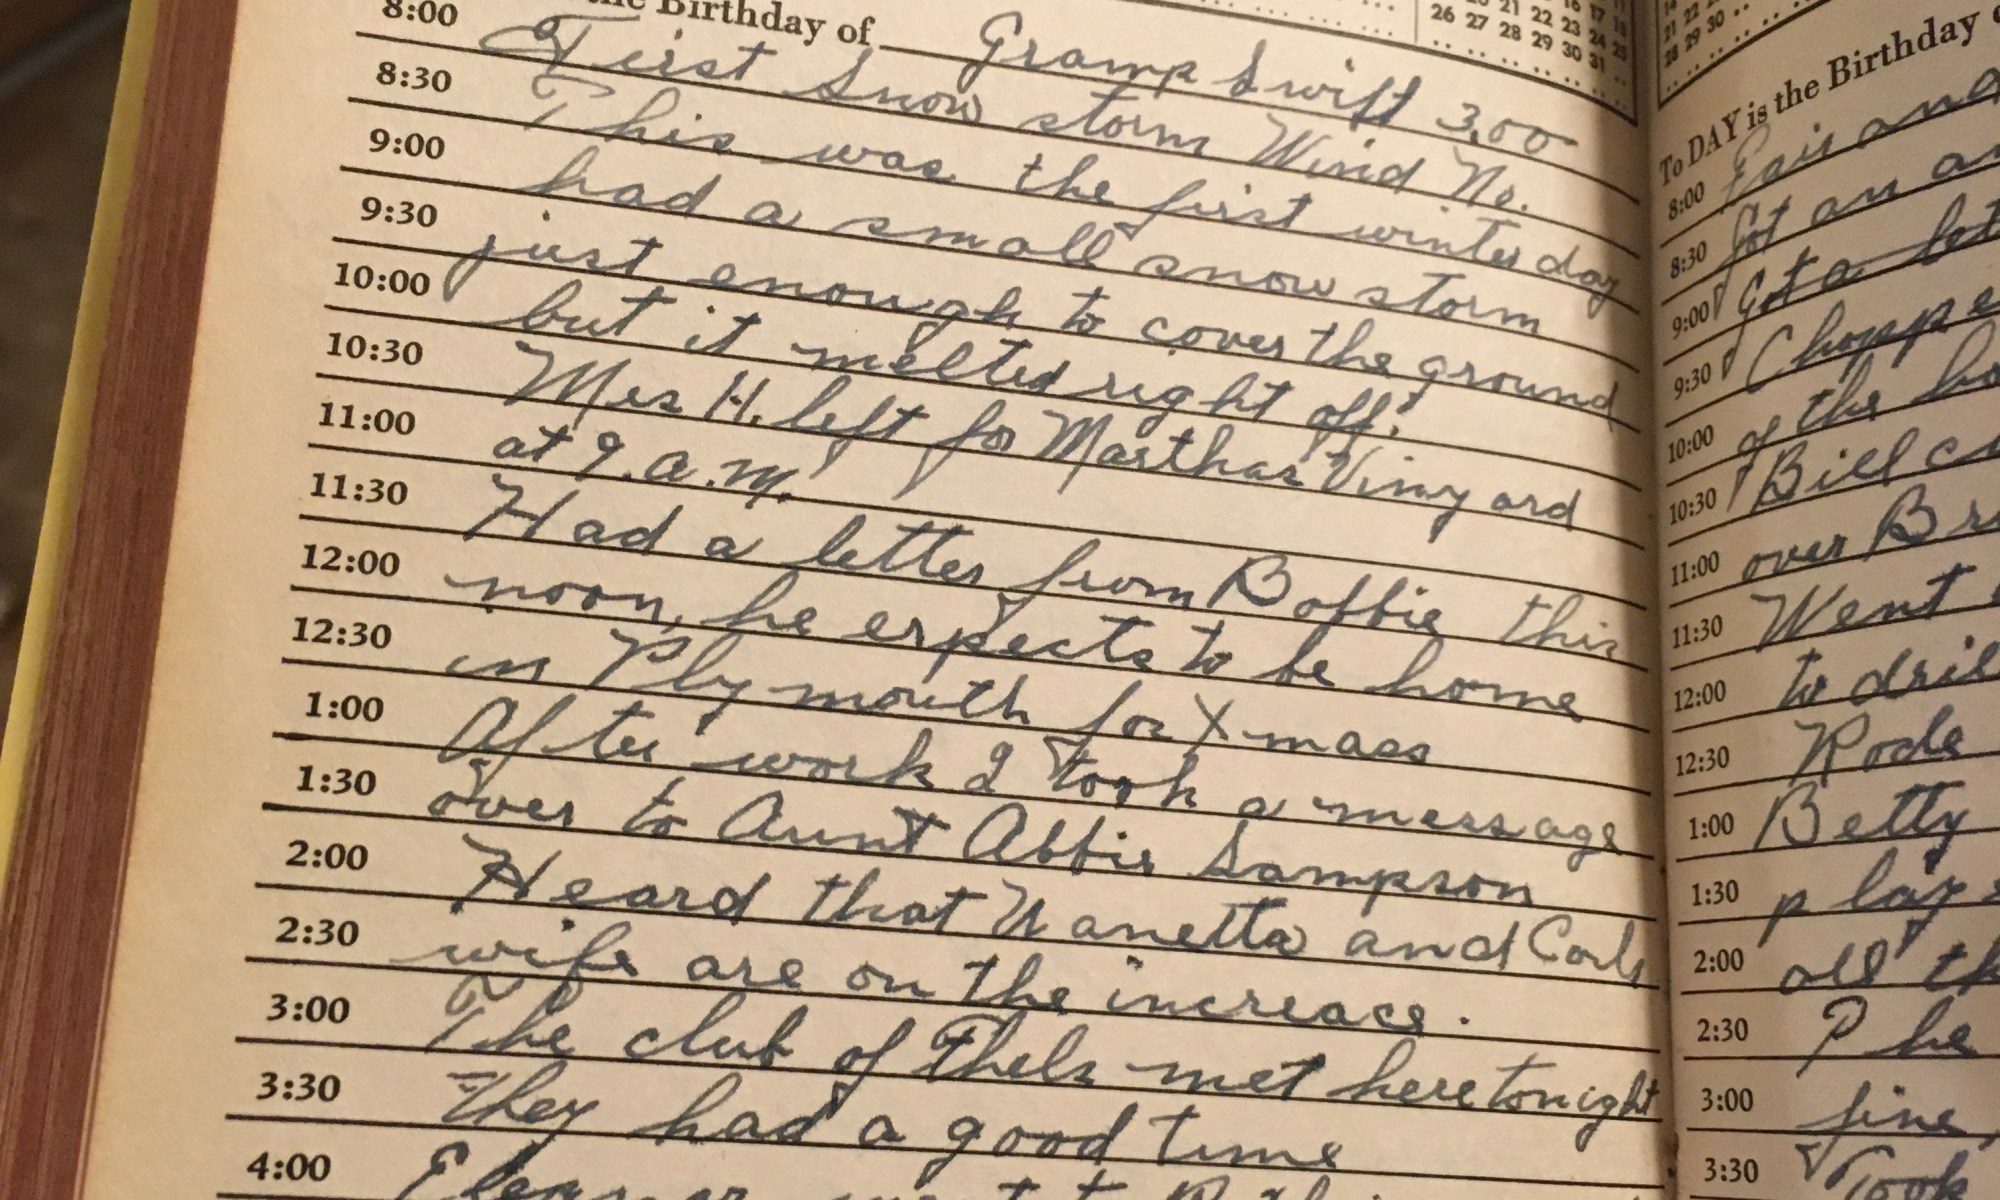 the Birthday of Gramp Swift 3.00
8:00 First Snow storm Wind No.
8:30 This was the first winter day
9:00 had a small snow storm
9:30 just enough to cover the ground
10:00 but it melted right off.
10:30 Mrs H. left for Marthas Vinyard
11:00 at 9.a.m.
11:30 Had a letter from Bobbie this
12:00 noon, he expects to be home
12:30 in Plymouth for Xmass
1:00 After work I took a message
1:30 over to Aunt Abbie Sampson
2:00 Heard that Wanetta and Carls
2:30 wife are on the increace.
3:00 The club of Thels met here tonight
3:30 They had a good time
4:00 Eleanor went to
20 21 22 23 24 25
26 27 28 29 30 31
28 29 30
To DAY is the Birthday
8:00 Fair and
8:30 Got an
9:00 Got a
9:30
10:00 of the
10:30 Bill
11:00 over
11:30 Went
12:00 to
12:30 Rode
1:00 Betty
1:30
2:00 all
2:30
3:00 fine,
3:30 Took